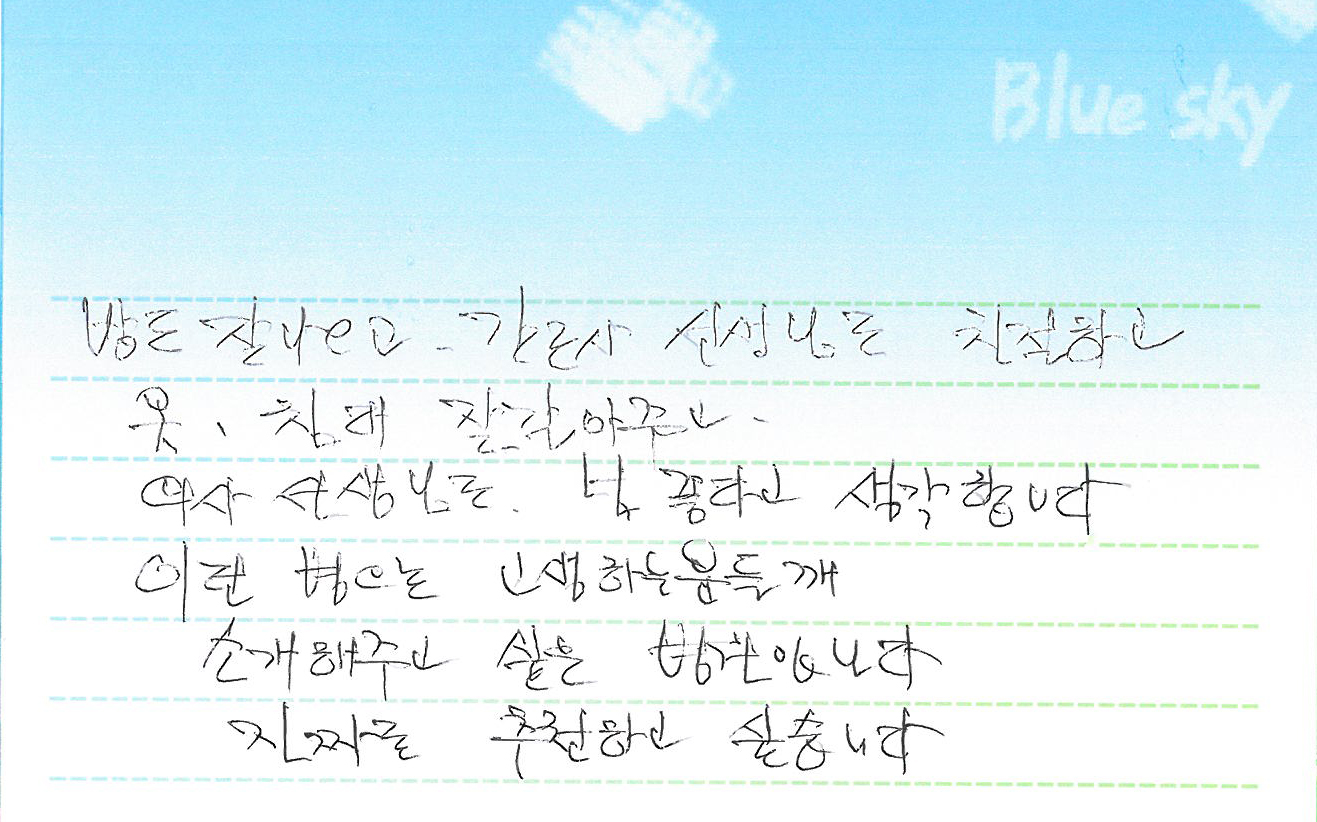 Blue sky
밥도 잘나오고. 간호사 선생님도 친절하고
옷、침대 잘갈아주고.
의사 선생님도. 넘 좋다고 생각합니다
이런 병으로 고생하는분들께
소개해주고 싶은 병원입니다
진짜로 추천하고 싶습니다